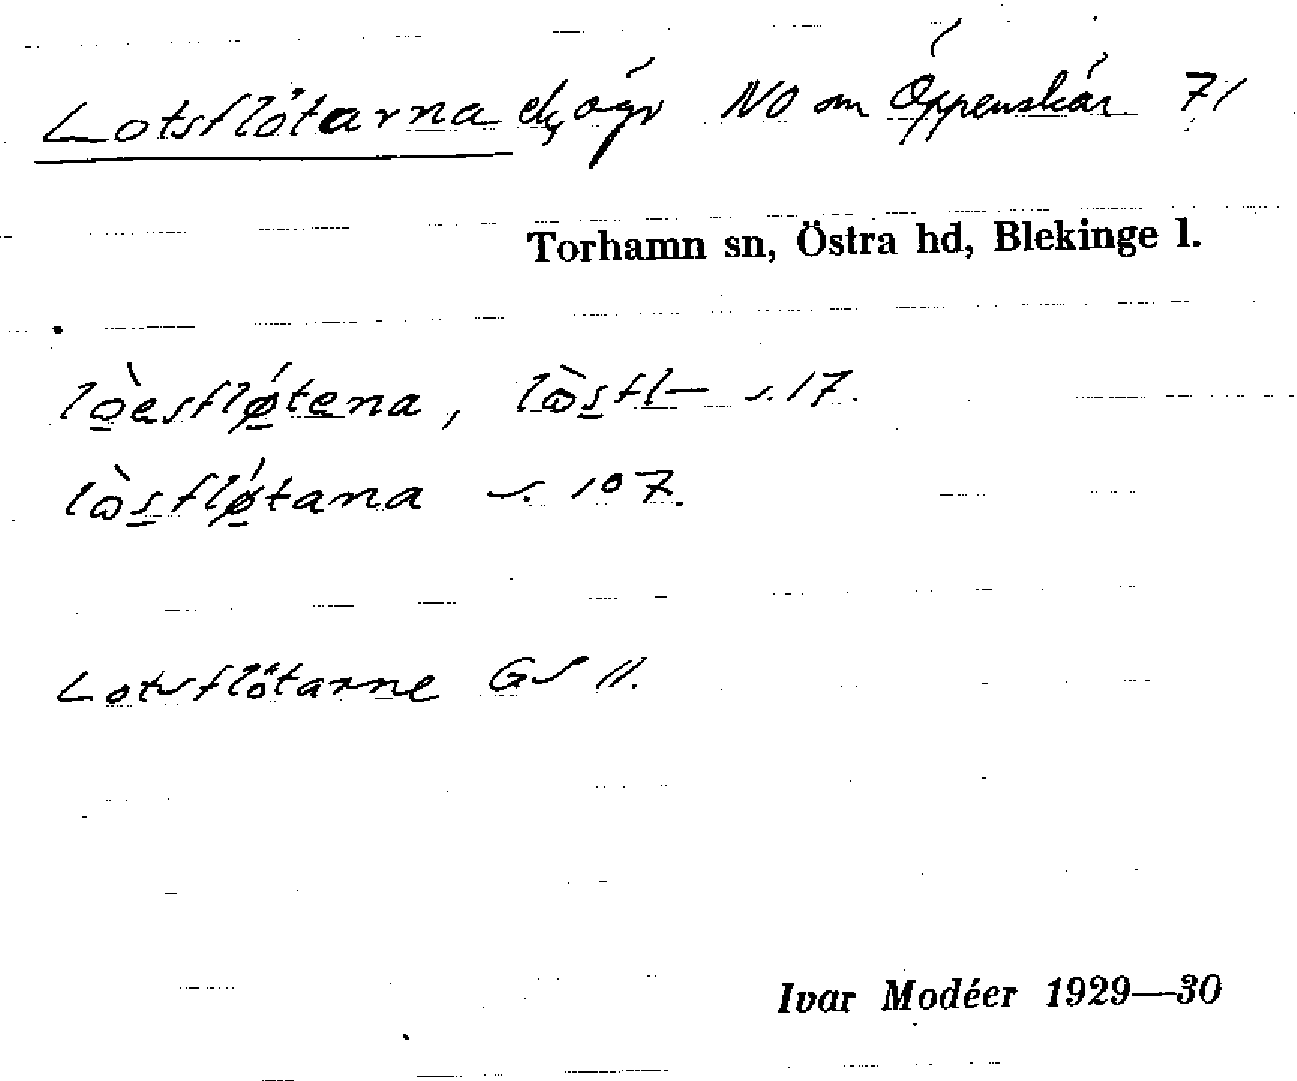 Lotsflötarna NO om Öppenskär 71
Torhamn sn, Östra hd, Blekinge l.
lòesfløtena, lòsfl— s. 17.
lòsfløtana s. 107.
Lotsflötarne GS 11.
Ivar Modéer 1929—30